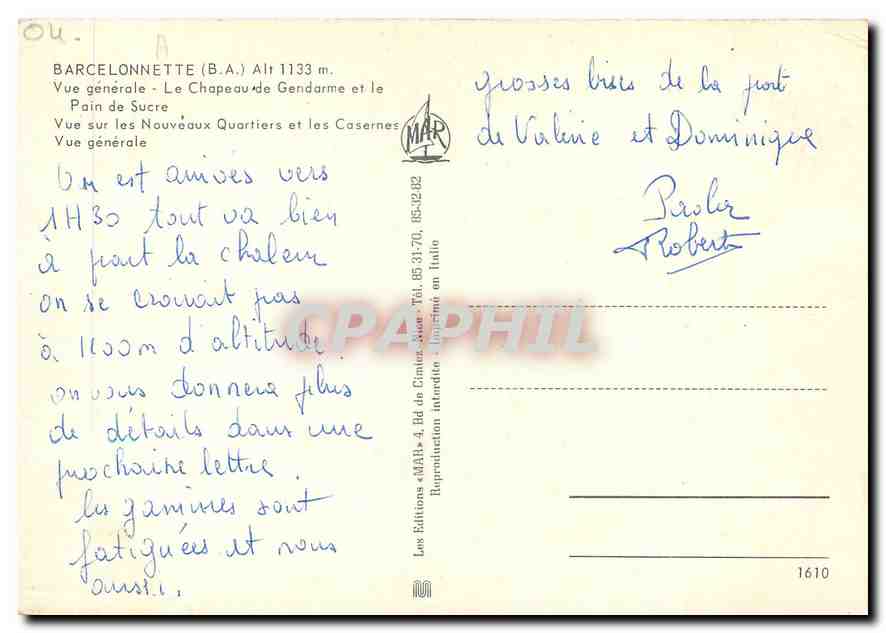 04.
BARCELONNETTE (B.A.) Alt 1133 m.
Vue générale - Le Chapeau de Gendarme et le
Pain de Sucre
Vue sur les Nouveaux Quartiers et les Casernes
Vue générale
MAR
On est arrivés vers
1H30 tout va bien
à part la chaleur
on se croirait pas
à 1100m d'altitude.
on vous donnera plus
de détails dans une
prochaine lettre.
les gamines sont
fatiguées et nous
aussi.
Les Editions «MAR» 4, Bd de Cimiez, Nice - Tél. 85 31-70, 85-32-82
Reproduction interdite - Imprimé en Italie
grosses bises de la part
de Valérie et Dominique
Robert
CPAPHIL
1610